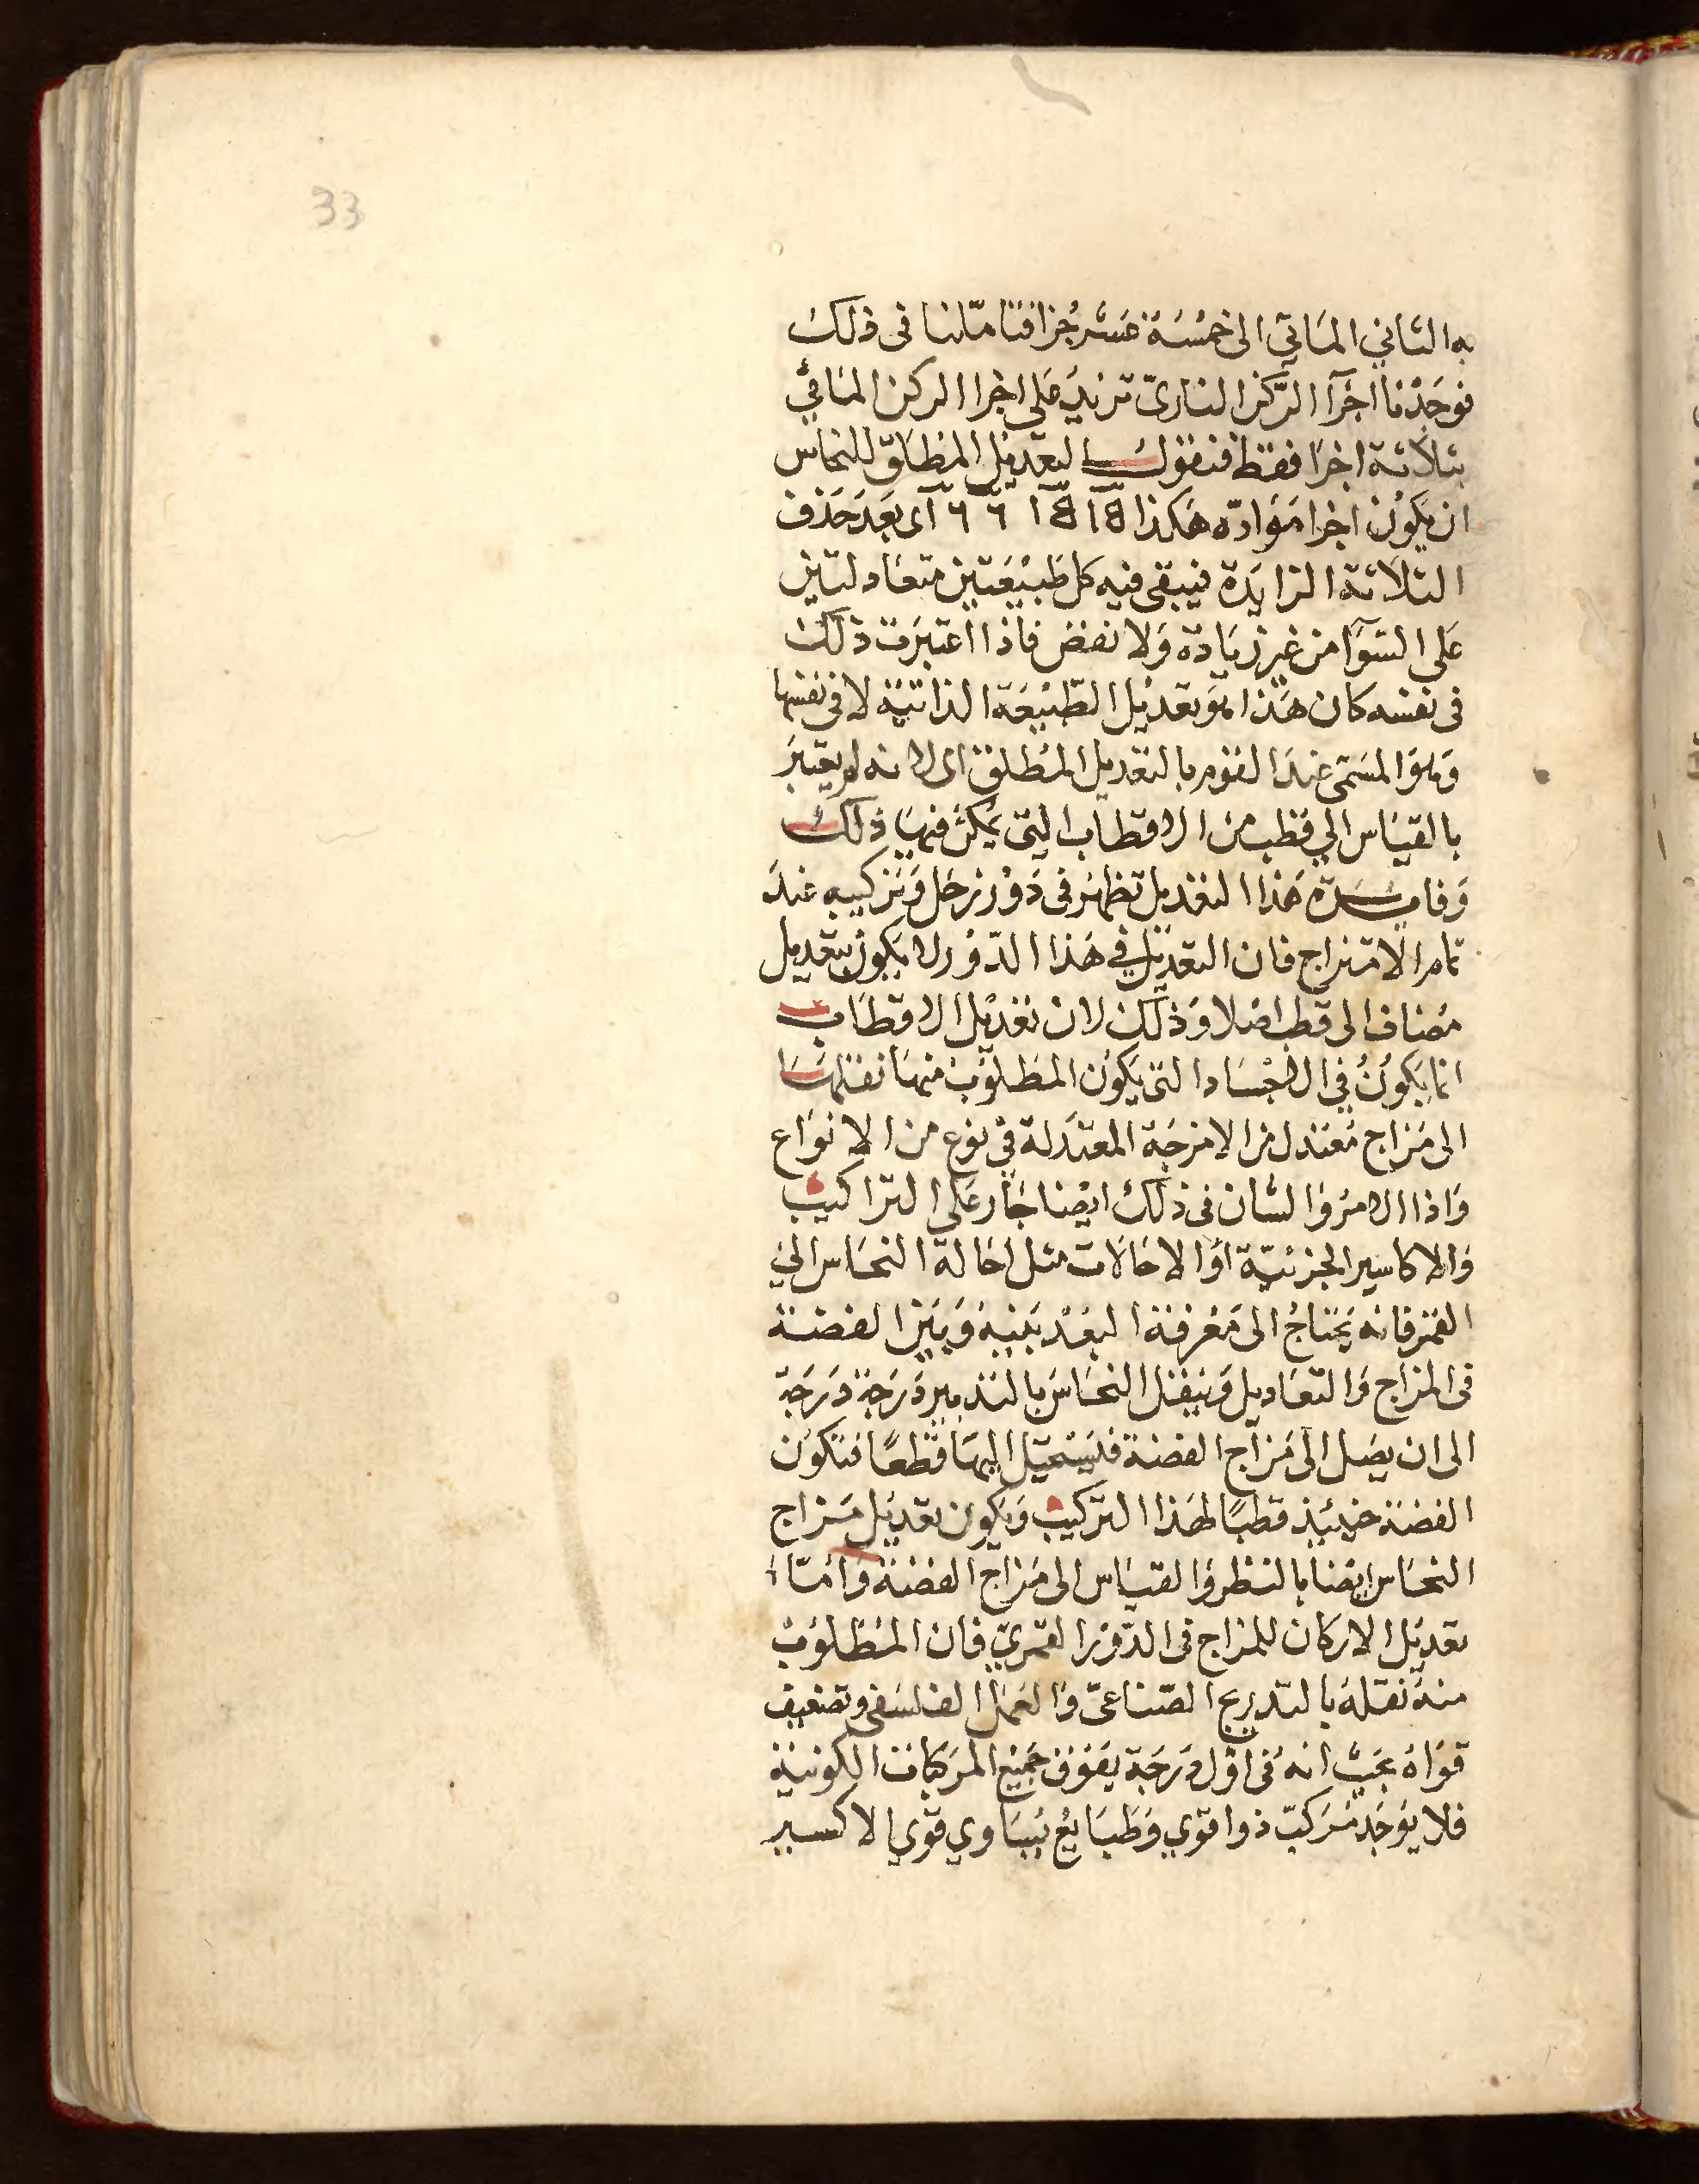 33
به الثاني المائي الى خمسة عشر جزا فتاملنا فى ذلك
فوجدنا اجزآ الركن النارى تزيد على اجزا الركن المائي
بثلاثة اجزا فقط فنقول التعديل المطلق للنحاس
ان يكون اجزا مواده هكذا
اى بعد حذف
الثلاثة الزايدة فيبقى فيه كل طبيعتين متعادلتين
على السوآ من غير زيادة ولا نقص فاذا اعتبرت ذلك
فى نفسه كان هذا هو تعديل الطبيعة الذاتية لا فى نفسها
وهو المسمى عند القوم بالتعديل المطلق اى لانه لم يعتبر
بالقياس الي قطب من الاقطاب التى يمكن فيها ذلك
وفايدة هذا التعديل تظهر فى دور زحل وتركيبه عند
تمام الامتزاج فان التعديل في هذا الدور لا يكون بتعديل
مضاف الى قطب اصلا وذلك لان تعديل الاقطاب
انما يكون في الاجساد التى يكون المطلوب منها نقلها
الى مزاج معتدل من الامزجة المعتدلة في نوع من الانواع
واذا الامر والشان فى ذلك ايضا جار على التراكيب
والاكاسير الجزئية او الاحالات مثل احالة النحاس الي
القمر فانه يحتاج الى معرفة البعد بينه وبين الفضة
فى المزاج والتعاديل وينقل النحاس بالتدبير درجة درجة
الى ان يصل الى مزاج الفضة فليستحيل اليها قطعا فتكون
الفضة حينئذ قطبا لهذا التركيب ويكون تعديل مزاج
النحاس ايضا بالنظر والقياس الى مزاج الفضة واما
تعديل الاركان للمزاج فى الدور القمري فان المطلوب
منه نقله بالتدريج الصناعى والعمل الفلسفى وتضعيف
قواه بحيث انه فى اول درجة يفوق جميع المركبات الكونية
فلا يوجد مركب ذوا قوي وطبايع يساوي قوي الاكسير